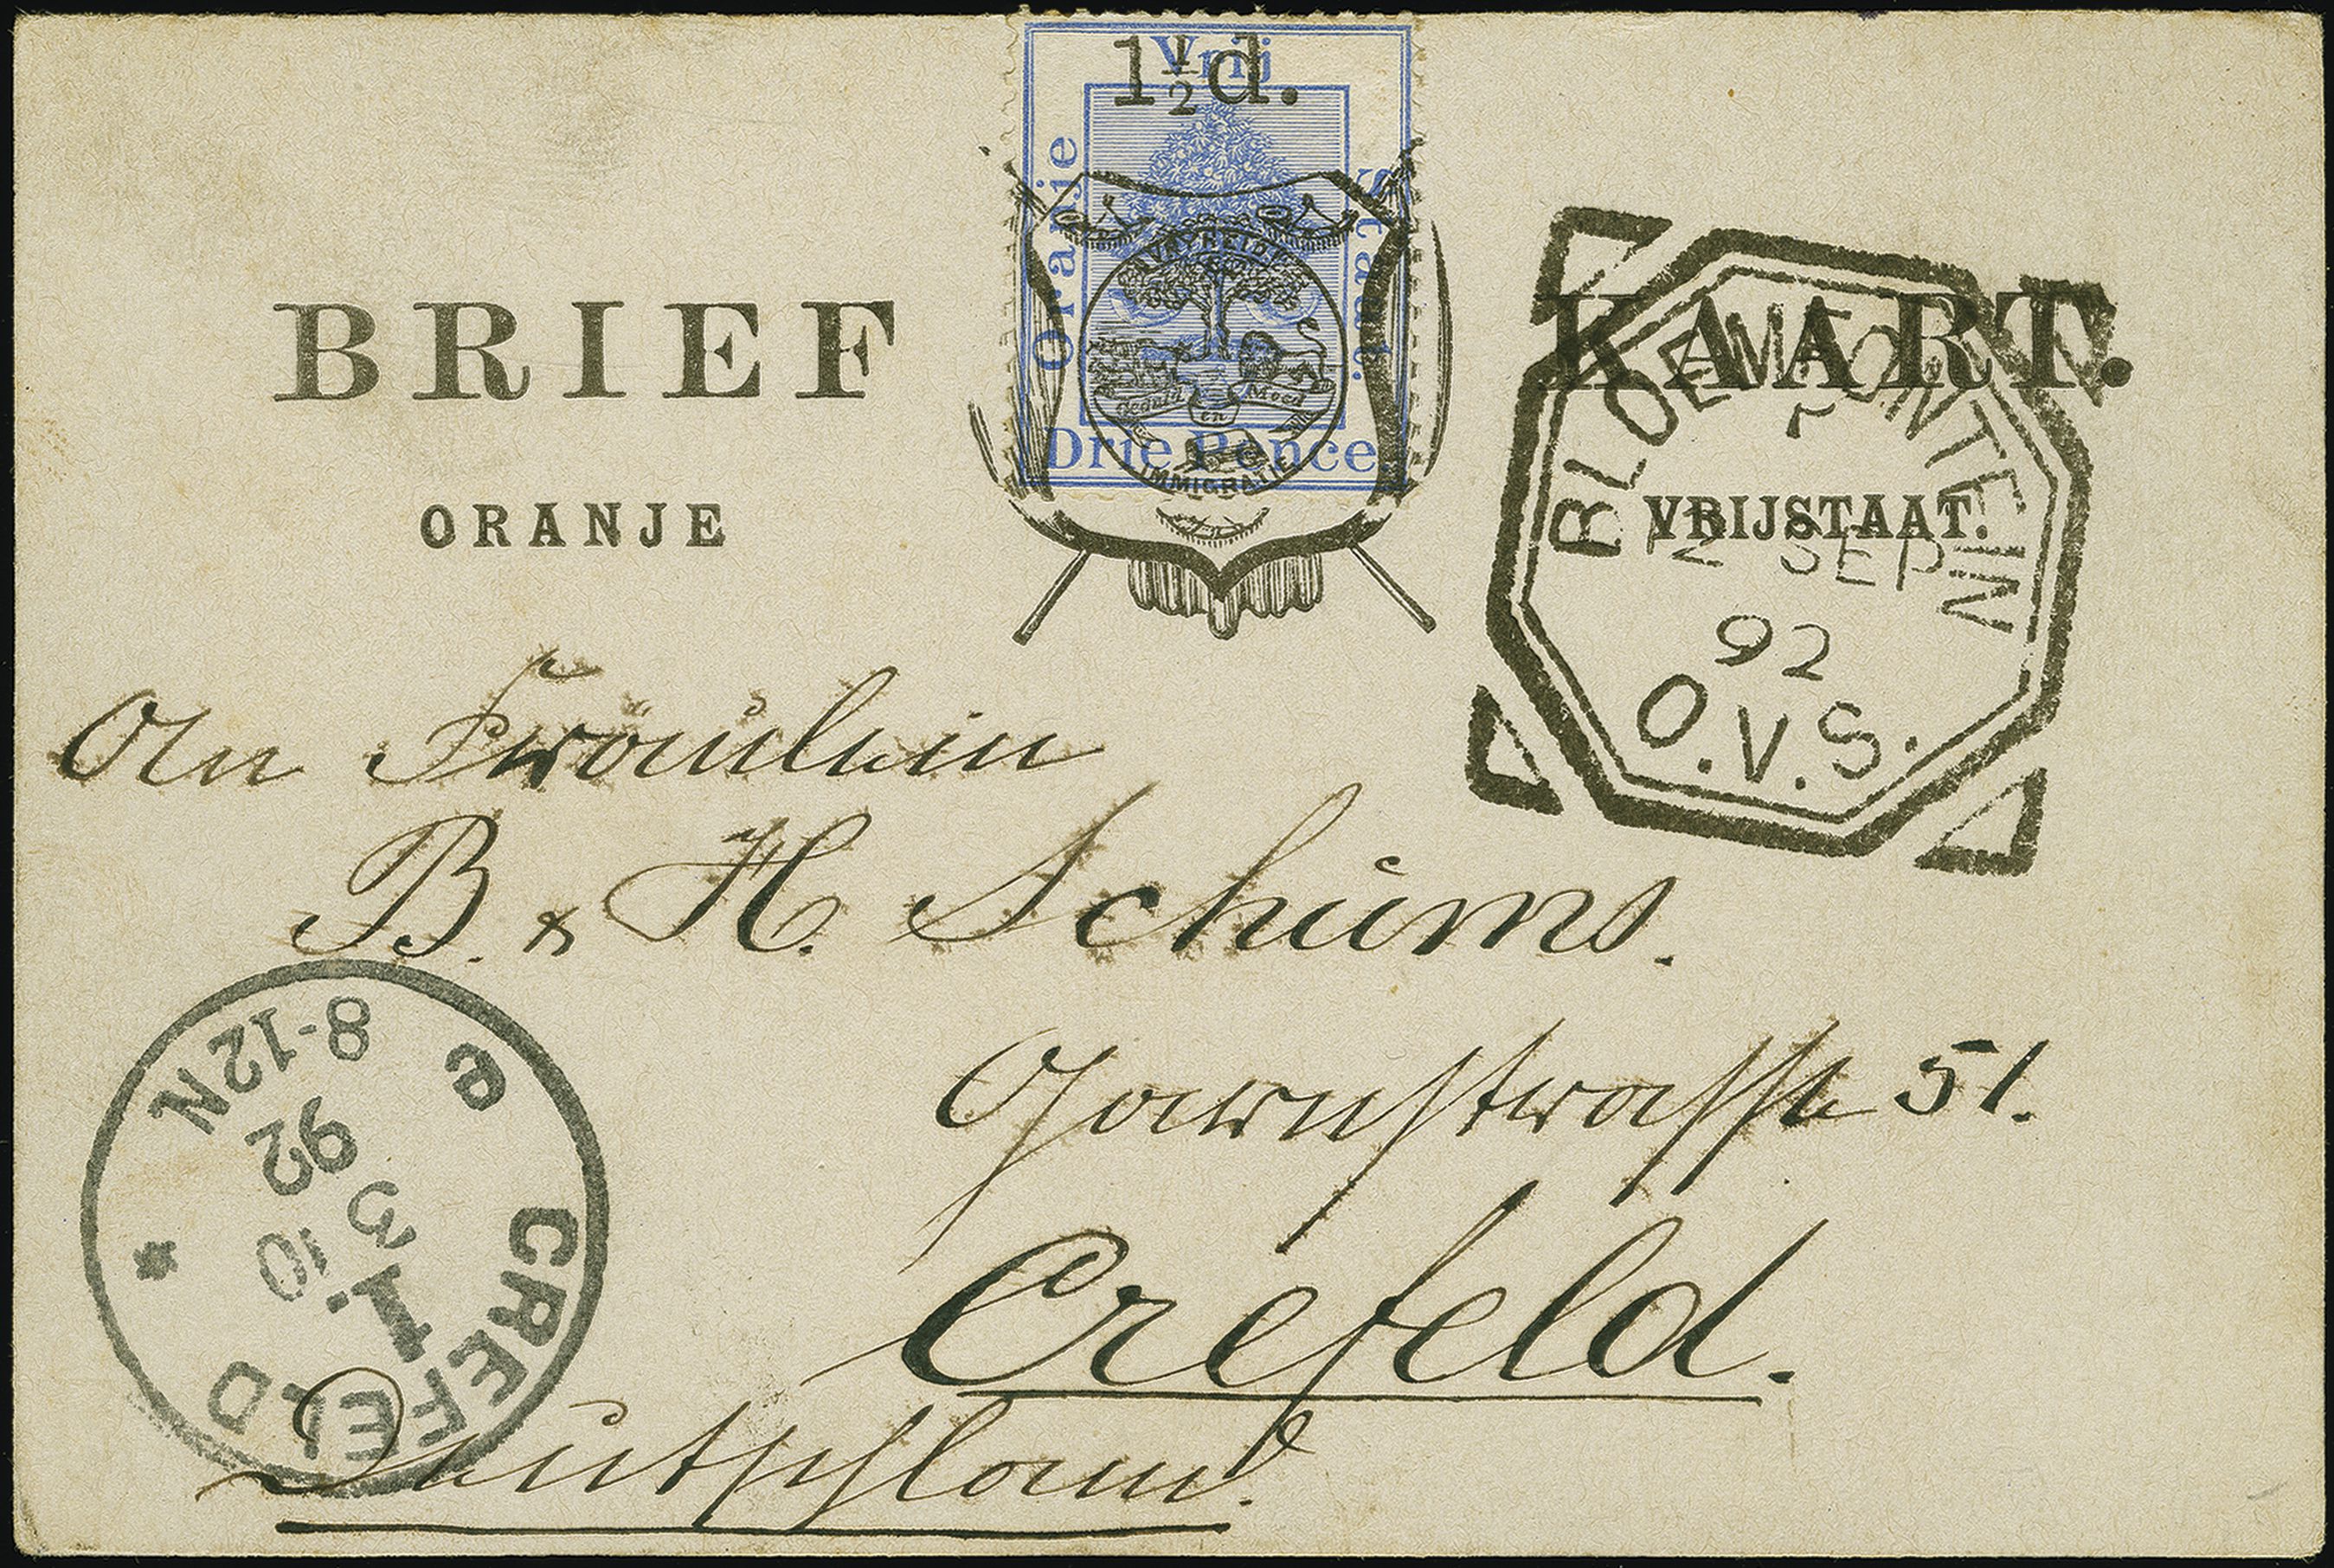 Vrij
1½d.
Oranje
Staat.
VRYHEID
Geduld en Moed
IMMIGRATIE
Drie Pence
BRIEF KAART.
ORANJE VRIJSTAAT.
BLOEMFONTEIN
12 SEP
92
O.V.S.
An Fräulein
B. & H. Schürms.
Gärnstrasse 51.
Crefeld.
Deutschland.
CREFELD
1.
3 10
92
8-12N
e